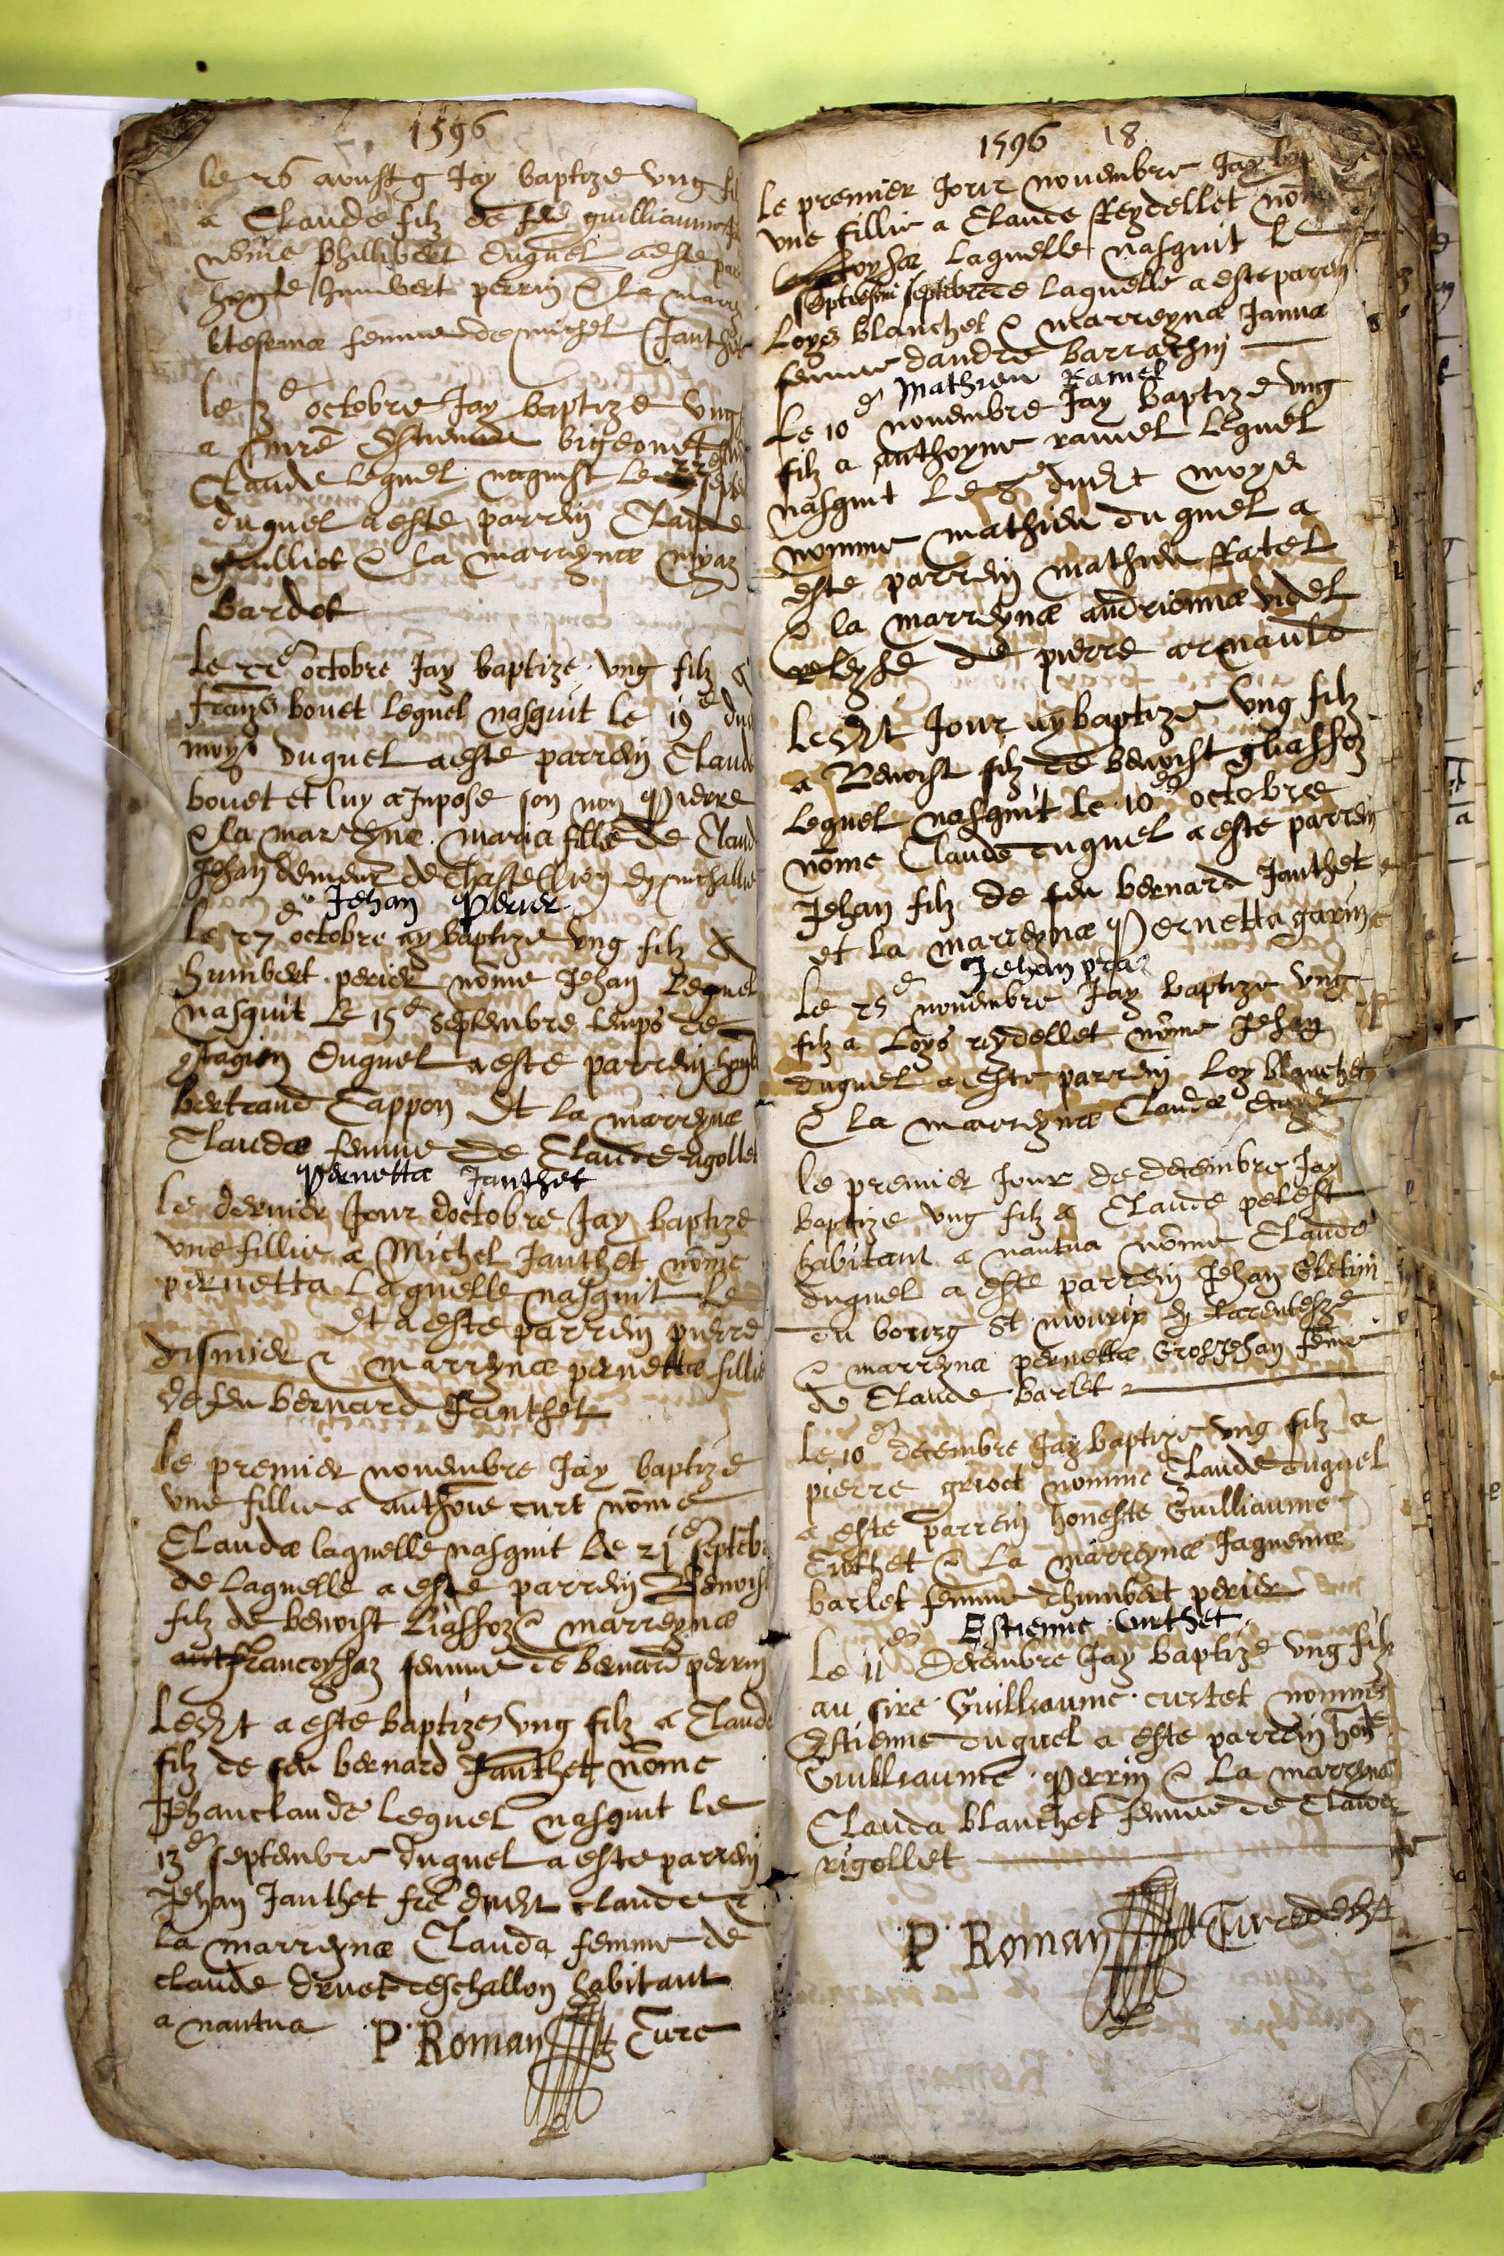 1596
le 26 aoust Jay baptize ung
a Claude filz de feu guilliaume
nōme Phillibert duquel a este
humbert perrin & la marr
femme de michel Janthet
le 3e octobre Jay baptize ung
a Estienne bigeouet
Claude lequel nasquist le 22
duquel a este parrein Claude
gailliot & la marreynæ
bardet
Le 22e octobre Jay baptize ung filz a
frāys bouet lequel nasquit le 19e du
moys duquel a este parrein Claude
bouet et luy a Inpose son non Pierre
& la marreynæ maria fillie de Claude
Jehan de
Jehan Perier
Le 27e octobre ay baptize ung filz a
humbert perier nōme Jehan Lequel
nasquit Le 15e septembre temps de
gtagion duquel a este parrein
bertrand Cappon Et la marreynæ
Claudæ femme de Claude rigollet
Pernettæ Janthet
le dernier Jour doctobre Jay baptize
une fillie a Michel Janthet nōme
pernetta Laquelle nasquit Le
Et a este parrein pierre
& marreynæ pernettæ fillie
de feu bernard Janthet
le premier novembre Jay baptize
une fillie a anthoīe curt nōme
Claudæ laquelle nasquit le 21e septeb
de laquelle a este parrein Benoist
filz de benoist & marreynæ
francoysaz femme de bernard perrin
Ledit a este baptize ung filz a Claude
filz de feu bernard Janthet nōme
Jehanclaude lequel nasquit le
13e septembre duquel a este parrein
Jehan Janthet fre dudit claude &
la marreynæ Clauda femme de
claude druet deschallon habitant
a nantua P. Roman Cure
1596 18
Le premier Jour novembre Jay
une fillie a Claude Reydellet nōm
Loysæ laquelle nasquit le
septembre de laquelle a este parrein
Loys blanchet & marreynæ Janna
femme dandre barrachin
Mathieu Ramel
Le 10e novembre Jay baptize ung
filz a anthoyne ramel lequel
nasquit le dudit moys
nomme mathieu duquel a
este parrein mathieu Ratel
& la marreynæ andrionnæ videl
de pierre arnauld
Ledit Jour ay baptize ung filz
a Benoist filz de benoist gliassoz
lequel nasquit le 10e octobre
nōme Claude duquel a este parrein
Jehan filz de feu bernard Janthet
et la marreynæ Pernetta garin
Jehan
Le 25e novembre Jay baptize ung
filz a Loys reydellet nōme Jehan
duquel a este parrein Loy blanchet
& la marreynæ Claudæ
Le premier Jour de decembre Jay
baptize ung filz a Claude
habitant a nantua nōme Claude
duquel a este parrein Jehan
du bourg St mouris
& marreynæ pernettæ GrosJehan feme
de Claude barlet
Le 10e decembre Jay baptize ung filz a
pierre grioct nomme Claude duquel
a este parrein honeste Guilliaume
Curthet & la marreynæ Jaquemæ
barlet femme dhumbert perier
Estienne Curthet
Le 11e decembre Jay baptize ung filz
au sire Guilliaume curtet nomme
Estienne duquel a este parrein
Guilliaume Perrin & la marreynæ
Clauda blanchet femme de Claude
rigollet
P. Roman Cure